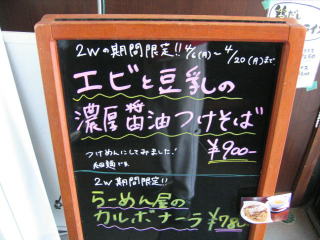 2Wの期間限定!! 4/6(月)~4/20(月)まで
エビと豆乳の
濃厚醤油つけそば
¥900-
つけめんにしてみました!
2W 期間限定!!
らーめん屋の
カルボナーラ ¥780-